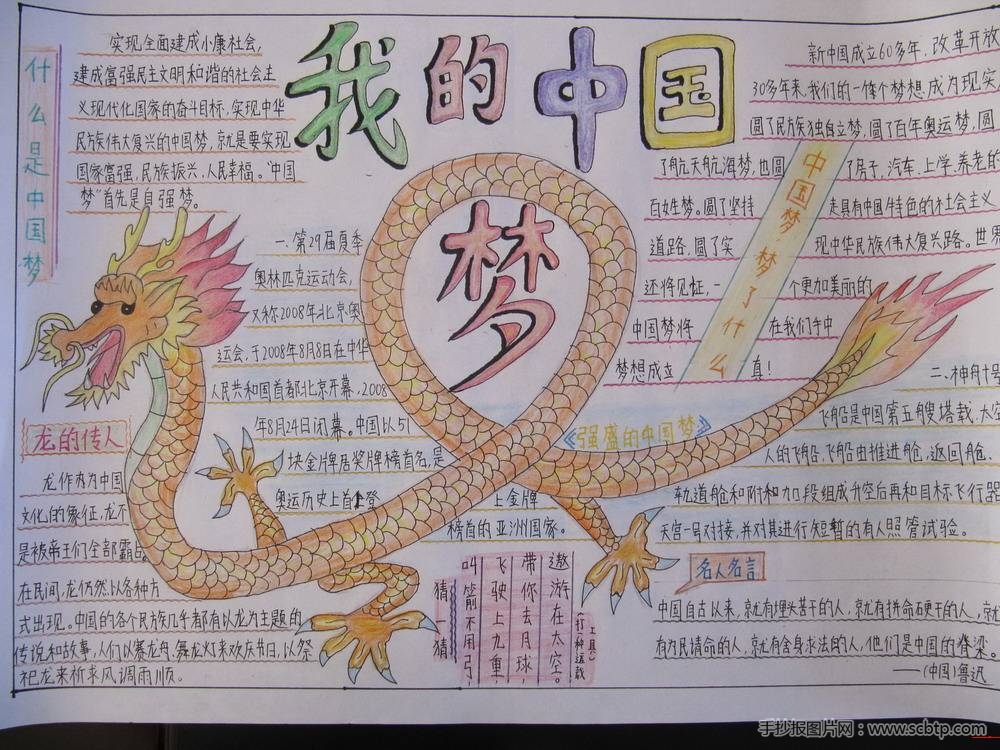 我的中国
梦
什么是中国梦
实现全面建成小康社会,
建成富强民主文明和谐的社会主
义现代化国家的奋斗目标,实现中华
民族伟大复兴的中国梦,就是要实现
国家富强,民族振兴,人民幸福。“中国
梦”首先是自强梦。
一.第29届夏季
奥林匹克运动会,
又称2008年北京奥
运会,于2008年8月8日在中华
人民共和国首都北京开幕,2008
年8月24日闭幕。中国以51
块金牌居奖牌榜首名,是
奥运历史上首登上金牌
榜首的亚洲国家。
新中国成立60多年,改革开放
30多年来,我们的一件个梦想成为现实
圆了民族独自立梦,圆了百年奥运梦,圆
了航天航海梦,也圆了房子,汽车,上学,养老的
百姓梦。圆了坚持走具有中国特色的社会主义
道路,圆了实现中华民族伟大复兴路。世界
还将见怔,一个更加美丽的
中国梦将在我们手中
梦想成立真!
中国梦,梦了什么
《强盛的中国梦》
二、神舟十号
飞船是中国第五艘塔载,太空
人的飞船,飞船由推进舱,返回舱、
轨道舱和附和加段组成升空后再和目标飞行器
天宫一号对接,并对其进行短暂的有人照管试验。
龙的传人
龙作内为中国
文化的象征,龙不
是被帝王们全部霸占
在民间,龙仍然以各种方
式出现。中国的各个民族几乎都有以龙为主题的
传说和故事,人们以赛龙舟、舞龙灯来欢庆节日,以祭
祀龙来祈求风调雨顺。
猜一猜
遨游在太空。
带你去月球,
飞驶上九重,
叫箭不用弓,
(打一种运载工具)
名人名言
中国自古以来,就有埋头苦干的人,就有拼命硬干的人,就
有为民请命的人,就有舍身求法的人,他们是中国的脊梁。
——(中国)鲁迅
手抄报图片网:www.scbtp.com